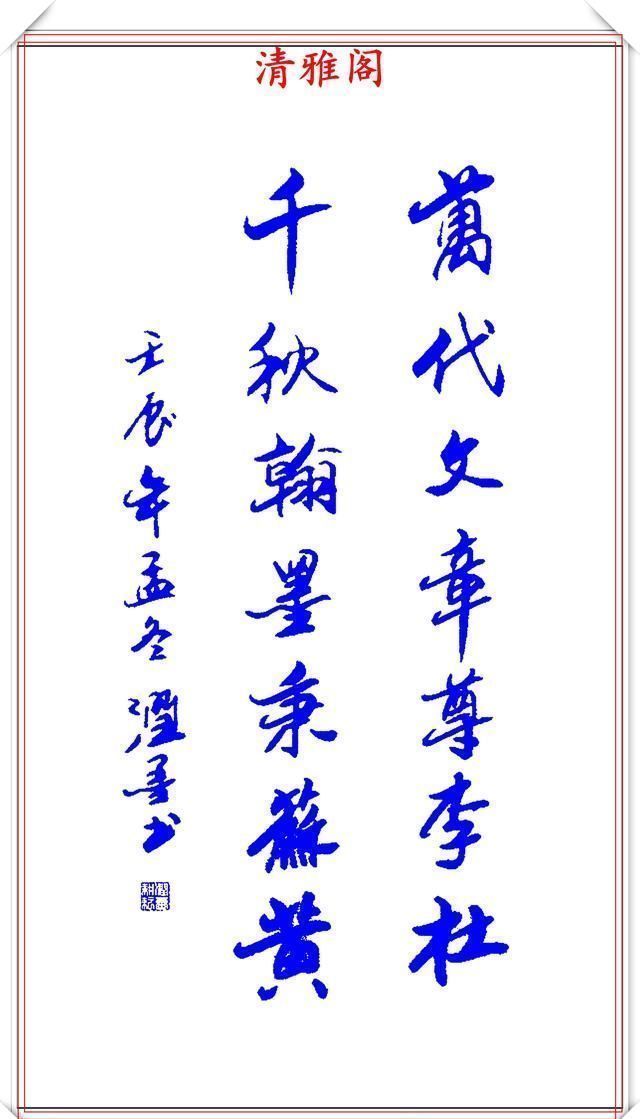 清雅阁
萬代文章尊李杜
千秋翰墨秉蘇黄
壬辰年孟冬 墨书